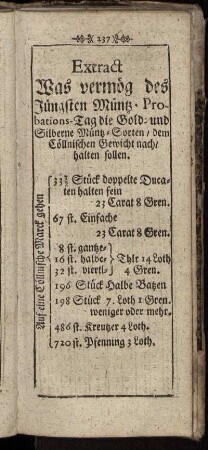 237
Extract
Was vermög des
Jüngsten Müntz-Pro-
bations-Tag die Gold- und
Silberne Müntz-Sorten / dem
Cöllnischen Gewicht nach /
halten sollen.
Auf eine Cöllnische Marck gehen
Stück doppelte Duca-
ten halten fein
23 Carat 8 Gren.
67 st. Einfache
23 Carat 8 Gren.
8 st. gantze-
16 st. halbe- Thlr 14 Loth
32 st. viertl- 4 Gren.
196 Stück Halbe Batzen
198 Stück 7. Loth 1 Gren.
weniger oder mehr.
486 st. Kreutzer 4 Loth.
720 st. Pfenning 3 Loth.